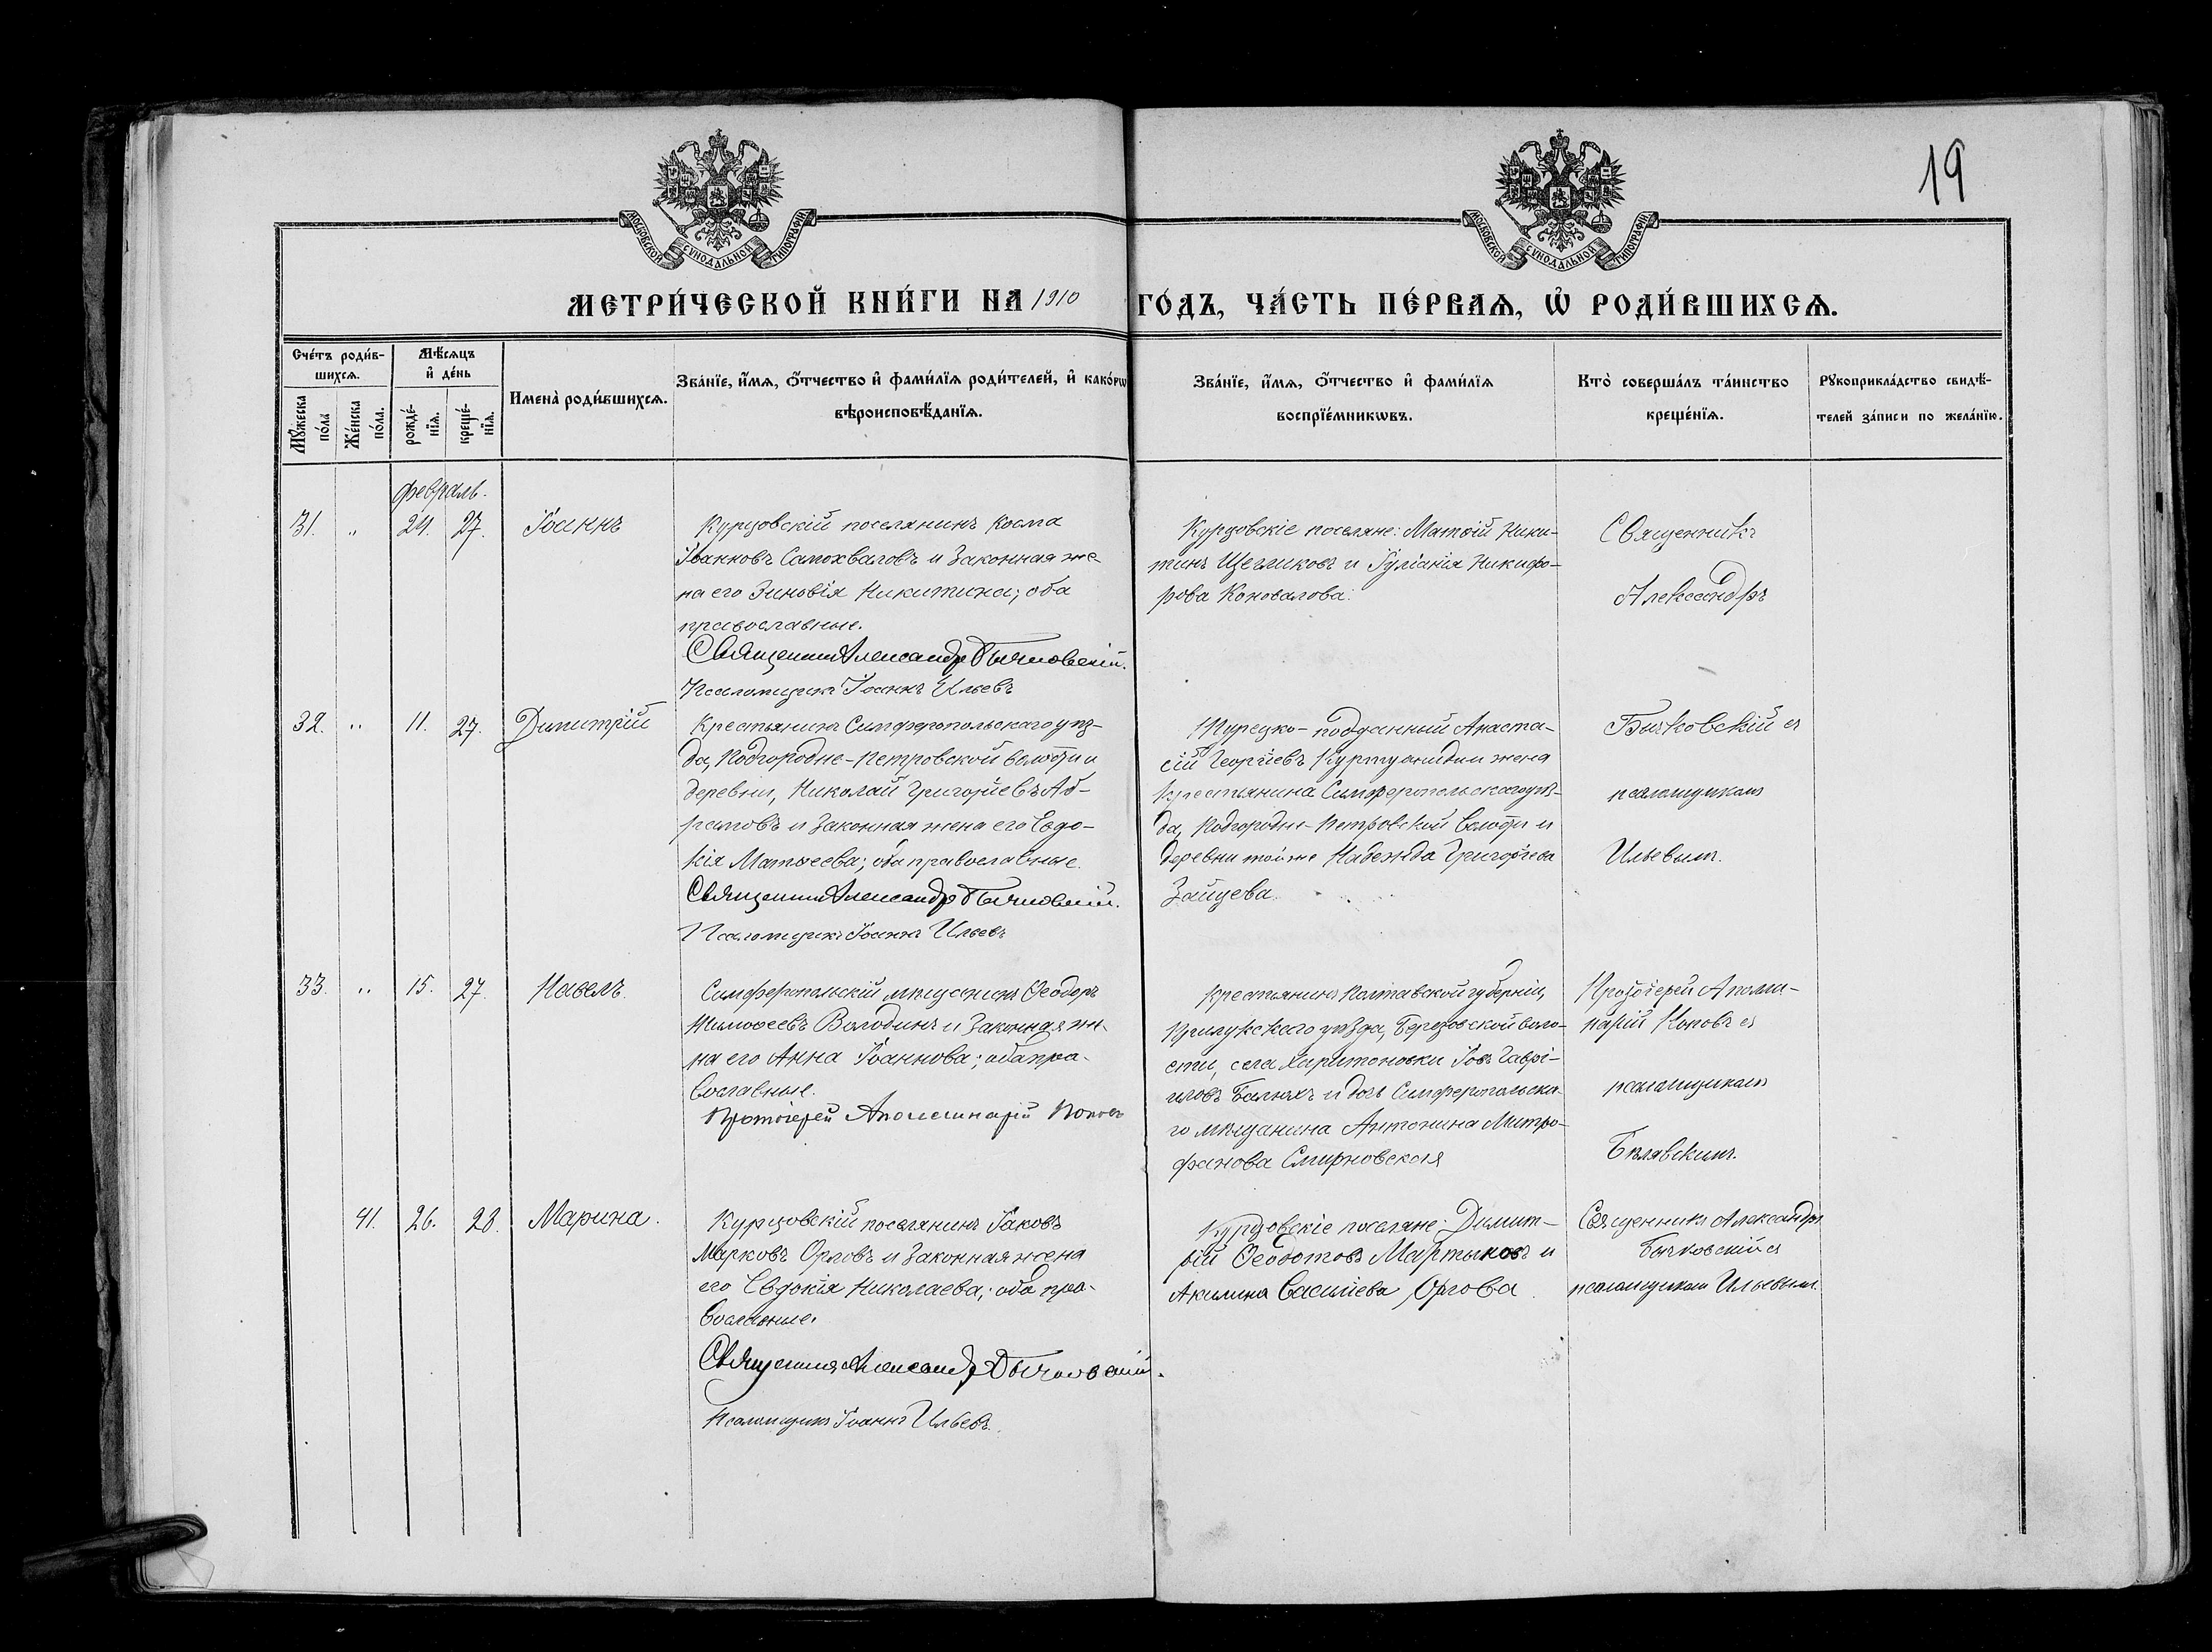 19
МОСКОВСКОЙ СѴНОДАЛЬНОЙ ТИПОГРАФІИ
МОСКОВСКОЙ СѴНОДАЛЬНОЙ ТИПОГРАФІИ
МЕТРИ́ЧЕСКОЙ КНИ́ГИ НА 1910 ГО́ДЪ, ЧА́СТЬ ПЕ́РВАѦ, Ѡ҆ РОДИ́ВШИХСѦ.
Сче́тъ роди́в-
шихсѧ.
Мꙋ́жеска по́ла
Же́нска по́ла.
Мѣ́сѧцъ
и҆ де́нь
рожде́-
нїѧ.
креще́-
нїѧ.
Имена̀ роди́вшихсѧ.
Зва́нїе, и҆́мѧ, ѻ҆́тчество и҆ фами́лїѧ роди́телей, и҆ како́гѡ
вѣроисповѣ́данїѧ.
Зва́нїе, и҆́мѧ, ѻ҆́тчество и҆ фами́лїѧ
воспрїе́мникѡвъ.
Кто̀ соверша́лъ та́инство
креще́нїѧ.
Рꙋкоприкла́дство свидѣ́-
телей за́писи по жела́нїю.
февраль.
31. „ 24. 27. Іоаннъ
Курцовскій поселянинъ Косма
Іоанновъ Самохваловъ и законная же-
на его Зиновія Никитина; оба
православные.
Священникъ Александръ Бычковскій.
Псаломщикъ Іоаннъ Ильевъ
Курцовскіе поселяне: Матѳій Ники-
тинъ Щегликовъ и Іуліанія Никифо-
рова Коновалова.
Священникъ
Александръ
32. „ 11. 27. Димитрій
Крестьянинъ Симферопольскаго уѣз-
да, Подгородне-Петровской волости и
деревни, Николай Григоріевъ Аб-
рамовъ и законная жена его Евдо-
кія Матѳеева; оба православные.
Священникъ Александръ Бычковскій.
Псаломщикъ Іоаннъ Ильевъ
Турецко-подданный Анаста-
сій Георгіевъ и жена
крестьянина Симферопольскаго уѣз-
да, Подгородне-Петровской волости и
деревни той же Надежда Григорьева
Зайцева.
Бычковскій съ
псаломщикомъ
Ильевымъ.
33. „ 15. 27. Павелъ.
Симферопольскій мѣщанинъ Ѳеодоръ
Тимоѳеевъ Володинъ и законная же-
на его Анна Іоаннова; оба пра-
вославные.
Протоіерей Аполлинарій Поповъ
Крестьянинъ Полтавской губерніи,
Прилукскаго уѣзда, Березовской воло-
сти, села Харитоновки Іовъ Гаврі-
иловъ и дочь Симферопольска-
го мѣщанина Антонина Митро-
фанова Смирновская
Протоіерей Аполли-
нарій Поповъ съ
псаломщикомъ
Бѣлявскимъ.
41. 26. 28. Марина.
Курцовскій поселянинъ Іаковъ
Марковъ Орловъ и законная жена
его Евдокія Николаева; оба пра-
вославные.
Священникъ Александръ Бычковскій.
Псаломщикъ Іоаннъ Ильевъ.
Курцовскіе поселяне: Димит-
рій Ѳеодотовъ Мартыновъ и
Акилина Василіева Орлова.
Священникъ Александръ
Бычковскій съ
псаломщикомъ Ильевымъ.